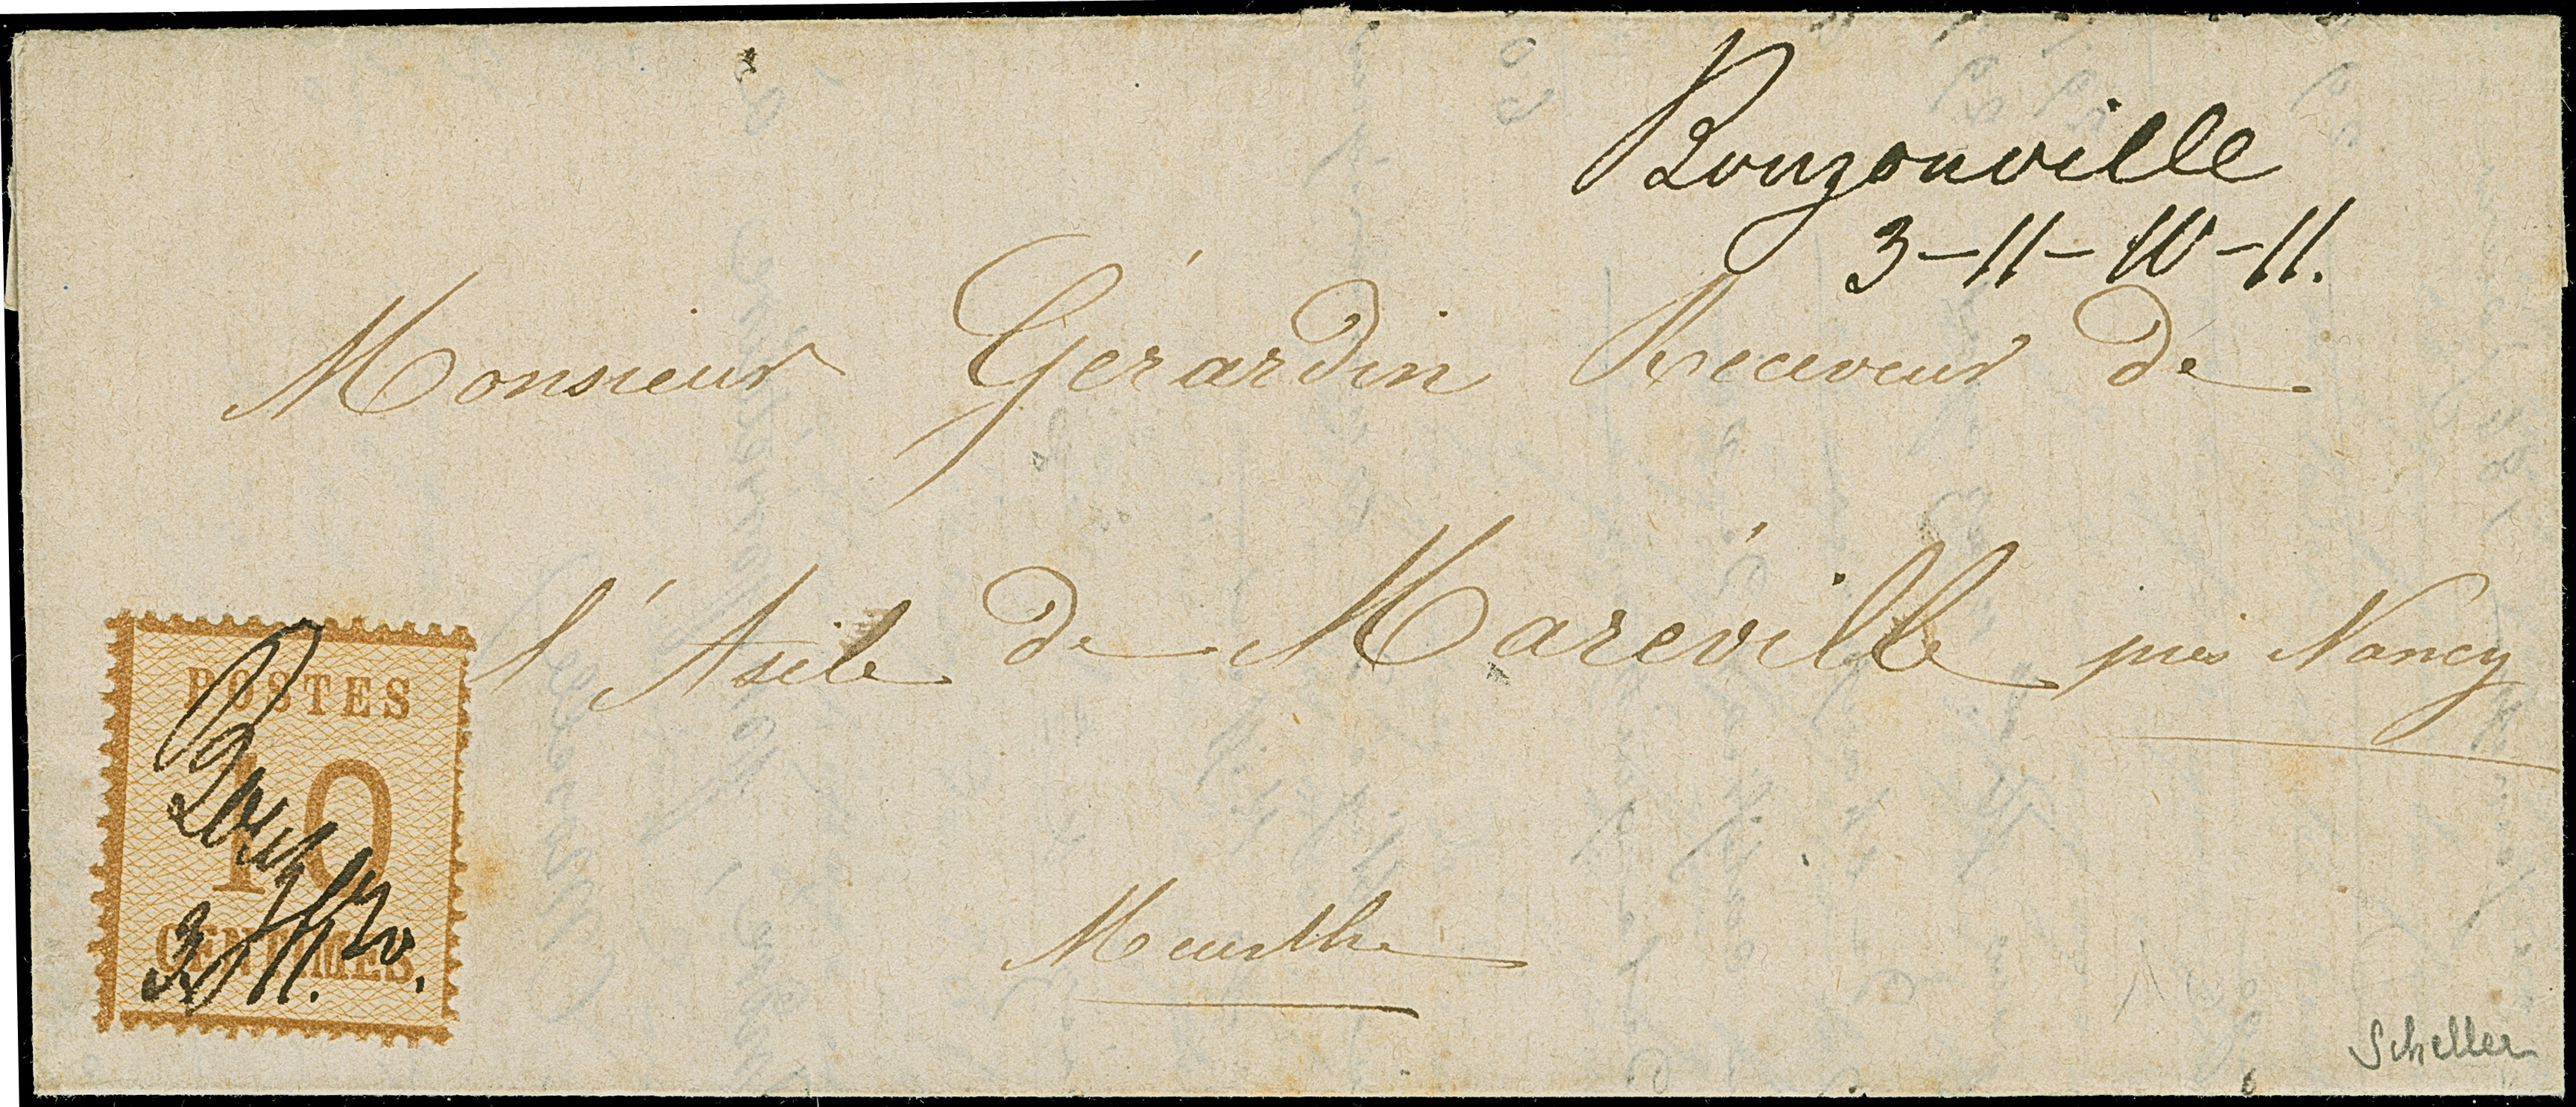 Bouzonville
3-11-10-11.
Monsieur Gérardin Receveur de
l'Asile de Maréville près Nancy
Meurthe
POSTES
10
CENTIMES
Scheller